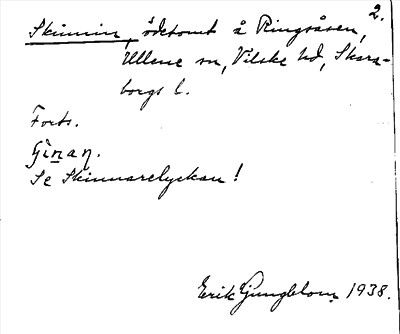 2.
Skinnin, ödetomt å Ringsåsen,
Ullene sn, Vilske hd, Skara-
borgs l.
Forts.
Se Skinnarelyckan!
Erik Ljungblom, 1938.